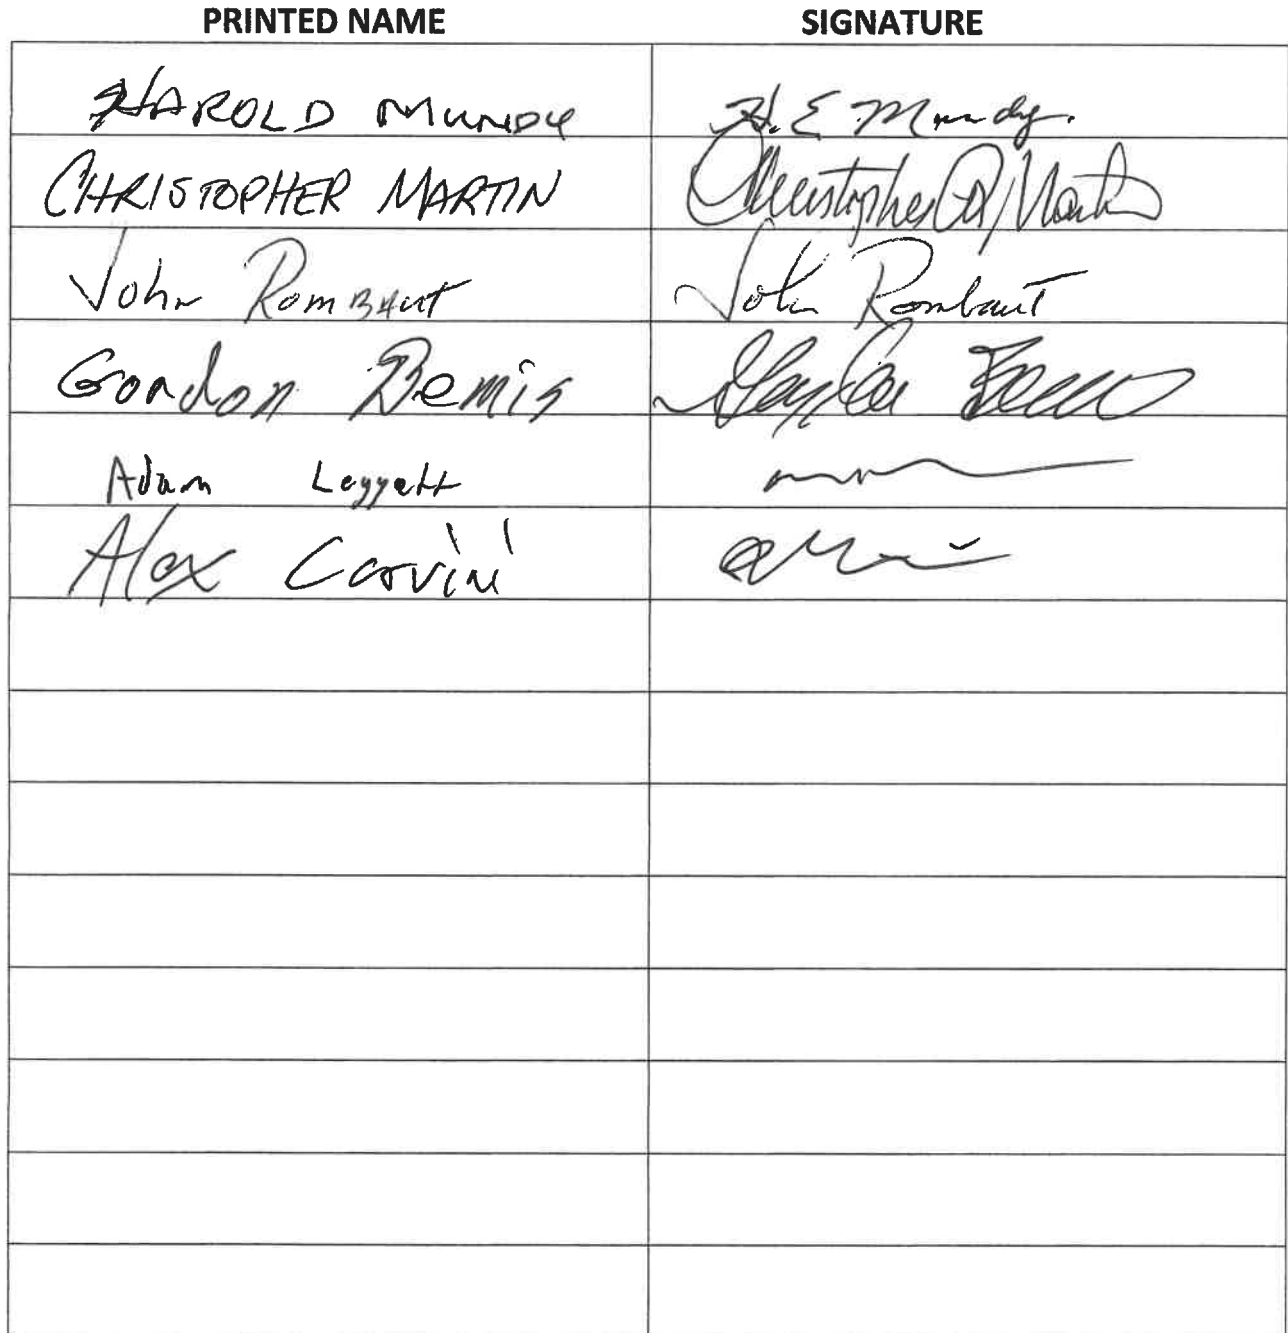 PRINTED NAME SIGNATURE
HAROLD MUNDY H. E Mundy.
CHRISTOPHER MARTIN Christopher Martin
John Rombaut John Rombaut
Gordon Bemis
Adam Leggett
Alex Corvini